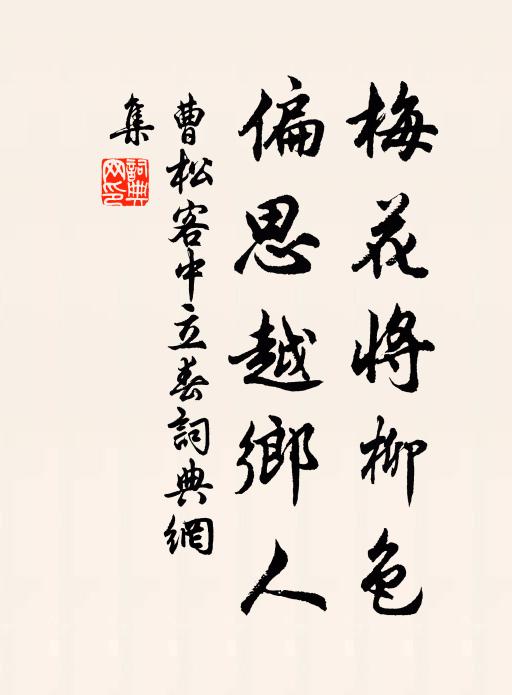 梅花將柳色
偏思越鄉人
曹松客中立春詞典網
集
詞典網印